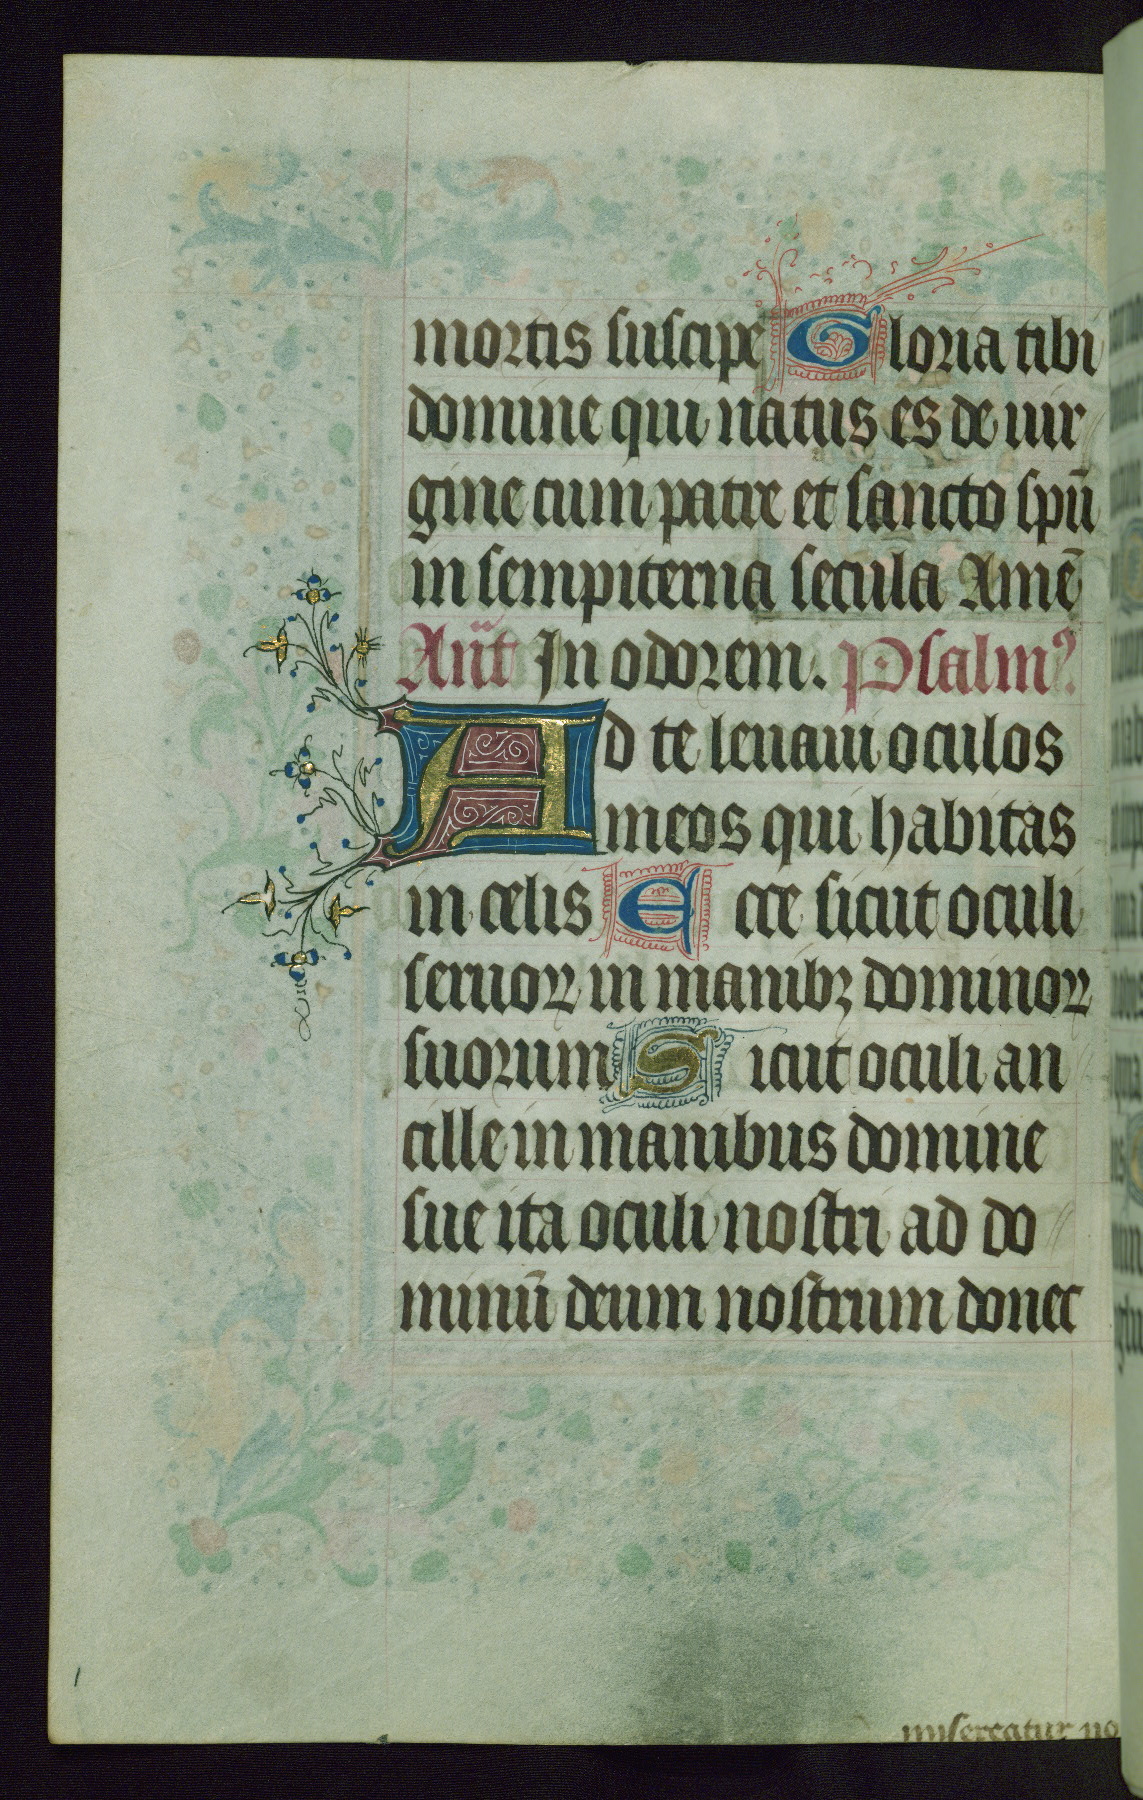 mortis suscipe Gloria tibi
domine qui natus es de uir
gine cum patre et sancto spū
in sempiterna secula Amē
Añt In odorem. Psalmꝰ.
Ad te leuaui oculos
meos qui habitas
in celis Ecce sicut oculi
seruoꝝ in manibꝫ dominoꝝ
suorum Sicut oculi an
cille in manibus domine
sue ita oculi nostri ad do
minū deum nostrum donec
misereatur no